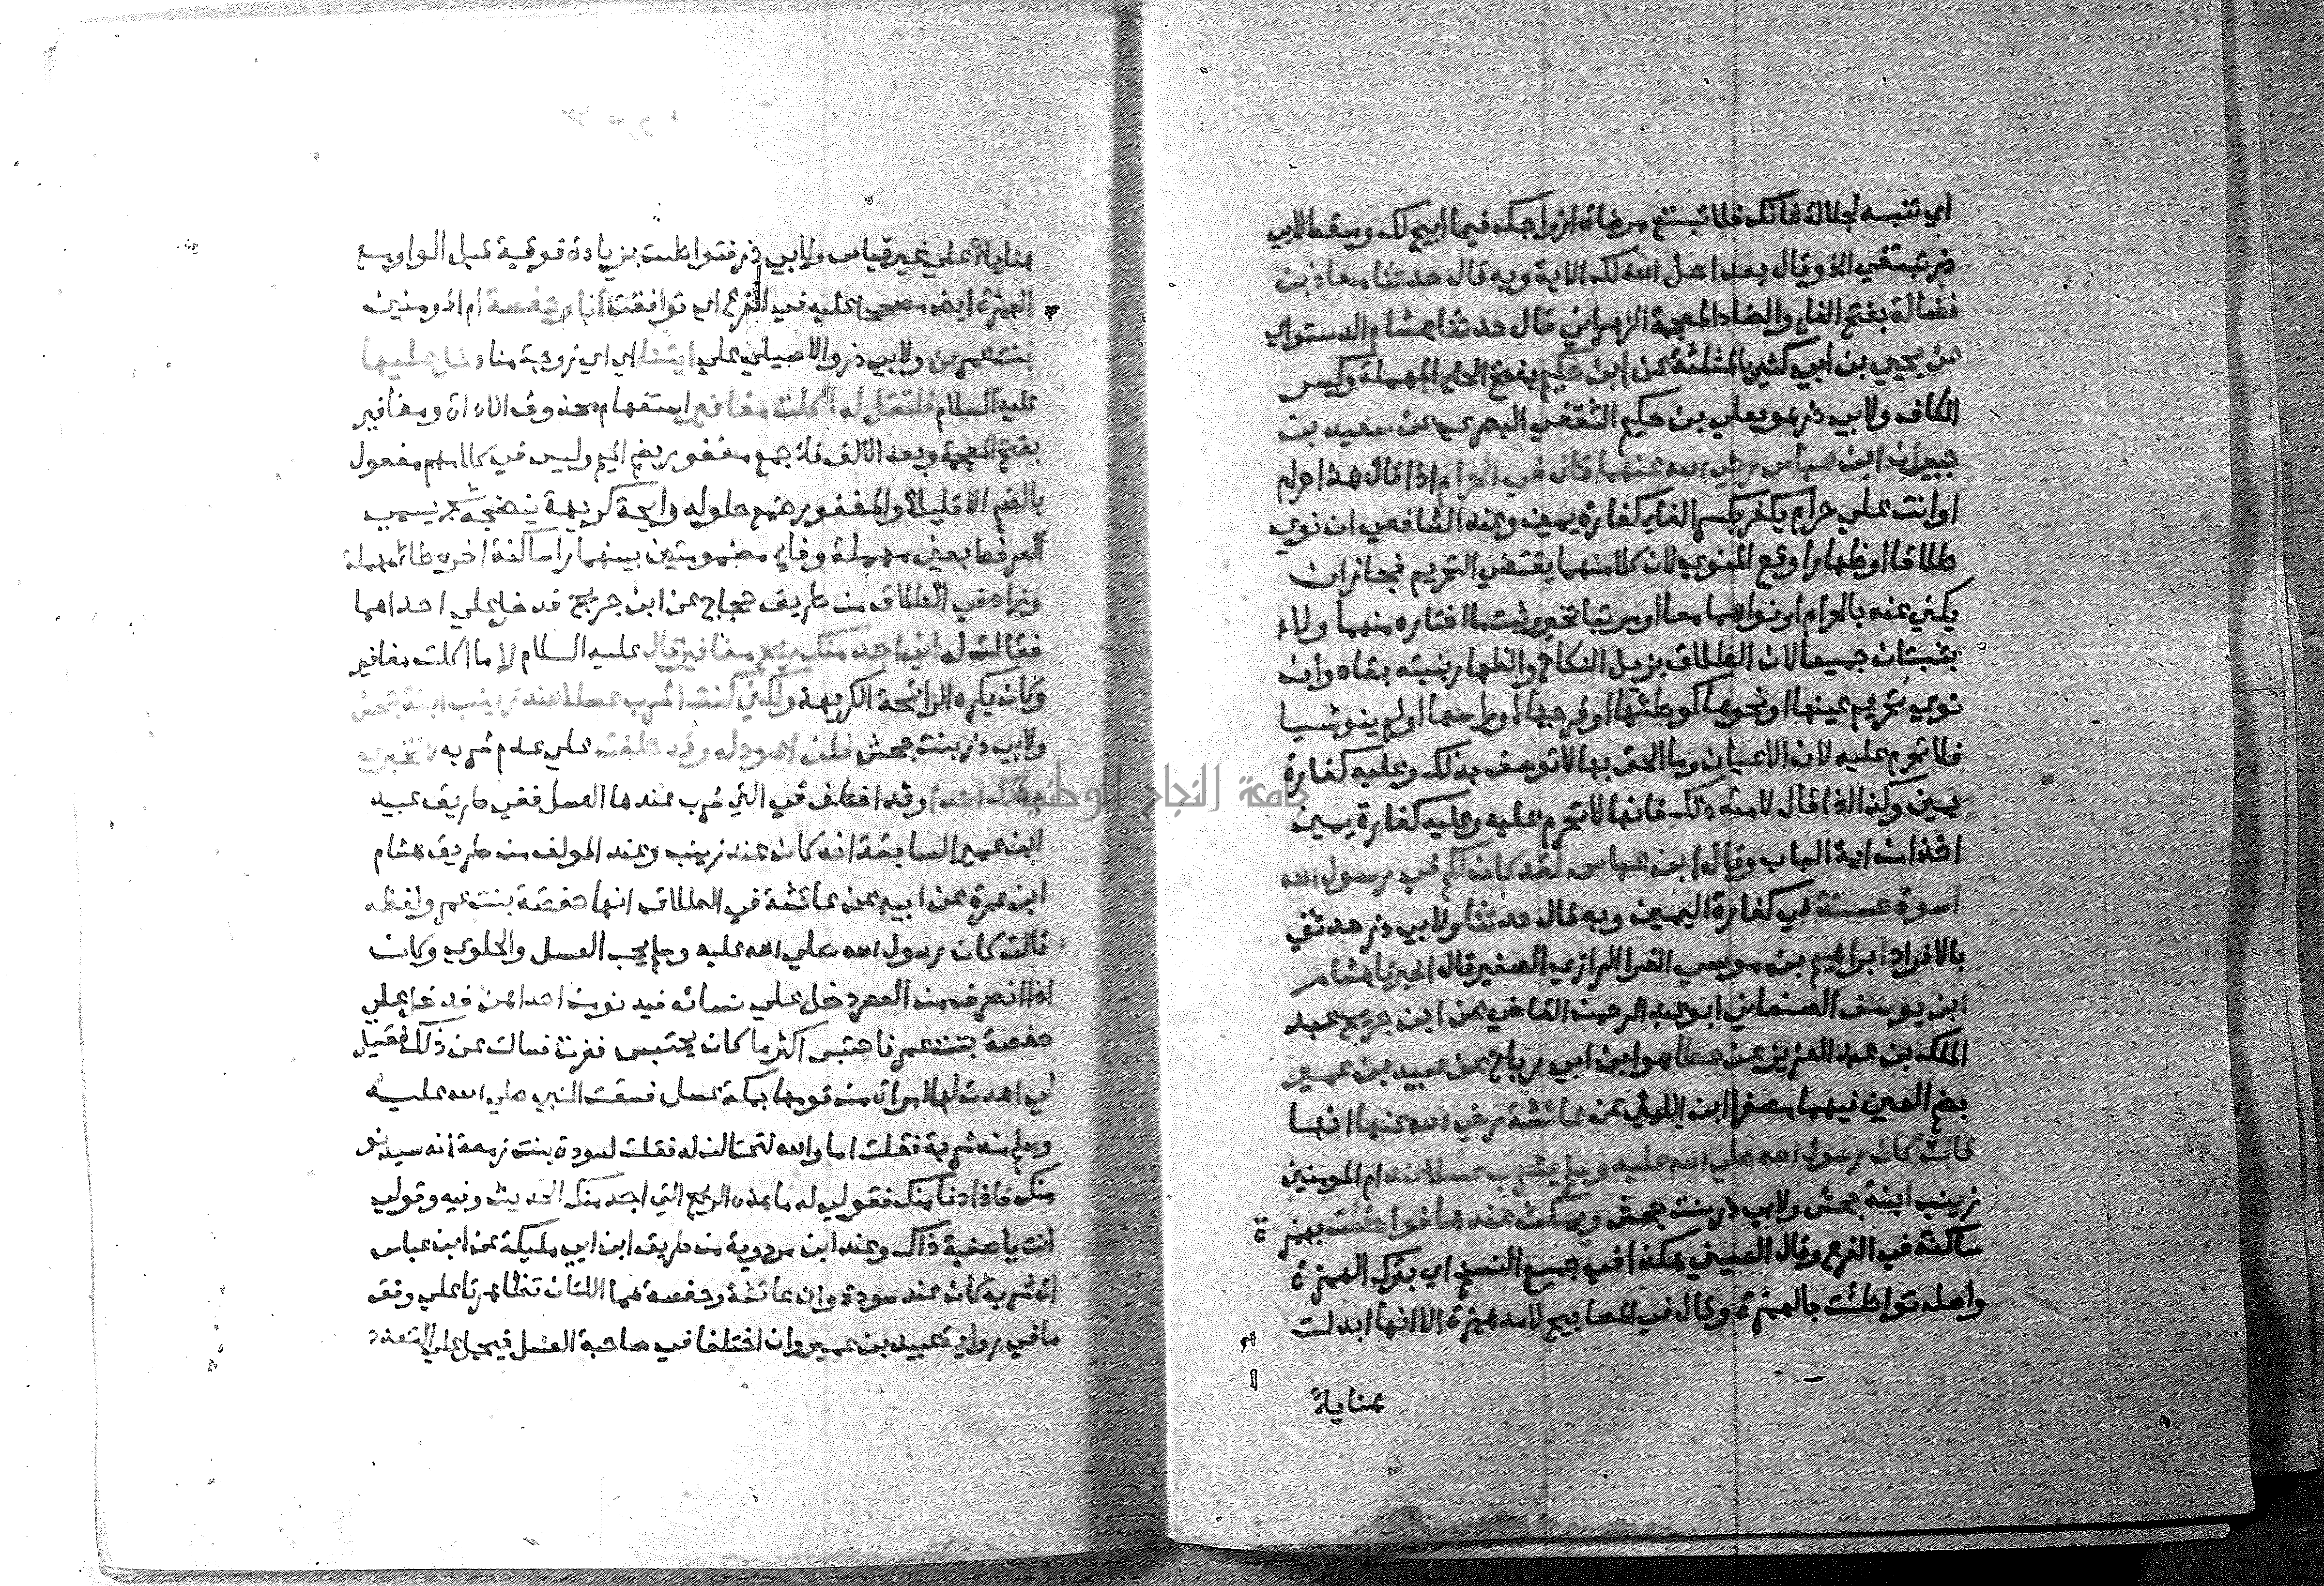 اي تنبه لجلالة شانك فلا تبتغ مرضاة ازواجك فيما ابيح لك وسقط لابي
ذر تبتغي الخ وقال بعد احل الله لك الاية وبه قال حدثنا معاذ بن
فضالة بفتح الفاء والضاد المعجمة الزهراني قال حدثنا هشام الدستواي
عن يحيي بن ابي كثير بالمثلثة عن ابن حكيم بفتح الحاء المهملة وكسر
الكاف ولابي ذر هو يعلي بن حكيم الثقفي البصري عن سعيد بن
جبير ان ابن عباس رضي الله عنهما قال في الحرام اذا قال هذا حرام
او انت علي حرام يكفر بكسر الفاء كفارة يمين وعند الشافعي ان نوي
طلاقا او ظهارا وقع المنوي لان كلا منهما يقتضي التحريم فجاز ان
يكني عنه بالحرام او نواهما معا او مرتبا تخير وثبت ما اختاره منهما ولا
يثبتان جميعا لان الطلاق يزيل النكاح والظهار يستدعي بقاه وان
نوي تحريم عينها او نحوها كوطئها او فرجها او راسها او لم ينو شيا
فلا تحرم عليه لان الاعيان وما الحق بها لا توصف بذلك وعليه كفارة
يمين وكذا اذا قال لامته ذلك فانها لا تحرم عليه وعليه كفارة يمين
اخذا من اية الباب وقال ابن عباس لقد كان لكم في رسول الله
اسوة حسنة في كفارة اليمين وبه قال حدثنا ولابي ذر حدثني
بالافراد ابراهيم بن موسي الفرا الرازي الصغير قال اخبرنا هشام
ابن يوسف الصنعاني ابو عبد الرحمن القاضي عن ابن جريج عبد
الملك بن عبد العزيز عن عطا هو ابن ابي رباح عن عبيد بن عمير
بضم العين فيهما مصغرا ابن الليثي عن عائشة رضي الله عنها انها
قالت كان رسول الله صلي الله عليه وسلم يشرب عسلا عند ام المومنين
زينب ابنة جحش ولابي ذر بنت جحش ويمكث عندها فواطئت بهمزة
ساكنة في الفرع وقال العيني هكذا في جميع النسخ اي بترك الهمزة
واصله تواطئت بالهمزة وقال في المصابيح لامه همزة الا انها ابدلت
عناية
هنا ياء علي غير قياس ولابي ذر فتواطئت بزيادة فوقية قبل الواو مع
الهمزة ايضا مصححا عليه في الفرع اي توافقت انا وحفصة ام المومنين
بنت عمر عن ولابي ذر والاصيلي علي ايتنا اي اي زوجة منا دخل عليها
عليه السلام فلتقل له اكلت مغافير استفهام محذوف الاداة ومغافير
بفتح المعجمة وبعد الالف فاء جمع مغفور بضم الميم وليس في كلامهم مفعول
بالضم الا قليلا والمغفور صمغ حلو له رايحة كريهة ينضجه شجر يسمي
العرفط بعين مهملة وفاء مضمومتين بينهما را ساكنة اخره طا مهملة
وزاد في الطلاق من طريق حجاج عن ابن جريج فدخل علي احداهما
فقالت له اني اجد منك ريح مغافير قال عليه السلام لا ما اكلت مغافير
وكان يكره الرائحة الكريهة ولكني كنت اشرب عسلا عند زينب ابنة جحش
ولابي ذر بنت جحش فلن اعود له وقد حلفت علي عدم شربه لا تخبري
بذلك احدا وقد اختلف في التي شرب عندها العسل ففي طريق عبيد
ابن عمير السابقة انه كان عند زينب وعند المولف من طريق هشام
ابن عروة عن ابيه عن عائشة في الطلاق انها حفصة بنت عمر ولفظه
قالت كان رسول الله صلي الله عليه وسلم يحب العسل والحلوي وكان
اذا انصرف من العصر دخل علي نسائه فيدنو من احداهن فدخل علي
حفصة بنت عمر فاحتبس اكثر ما كان يحتبس فغرت فسالت عن ذلك فقيل
لي اهدت لها امراة من قومها بمكة عسل فسقت النبي صلي الله عليه
وسلم منه شربة فقلت اما والله لنحتالن له فقلت لسودة بنت زمعة انه سيدنو
منك فاذا دنا منك فقولي له ما هذه الريح التي اجد منك الحديث وفيه وقولي
انت يا صفية ذاك وعند ابن مردوية من طريق ابن ابي مليكة عن ابن عباس
ان شربه كان عند سودة وان عائشة وحفصة هما اللتان تظاهرتا علي وفق
ما في رواية عبيد بن عمير وان اختلفا في صاحبة العسل فيحمل علي التعدد
جامعة النجاح الوطنية